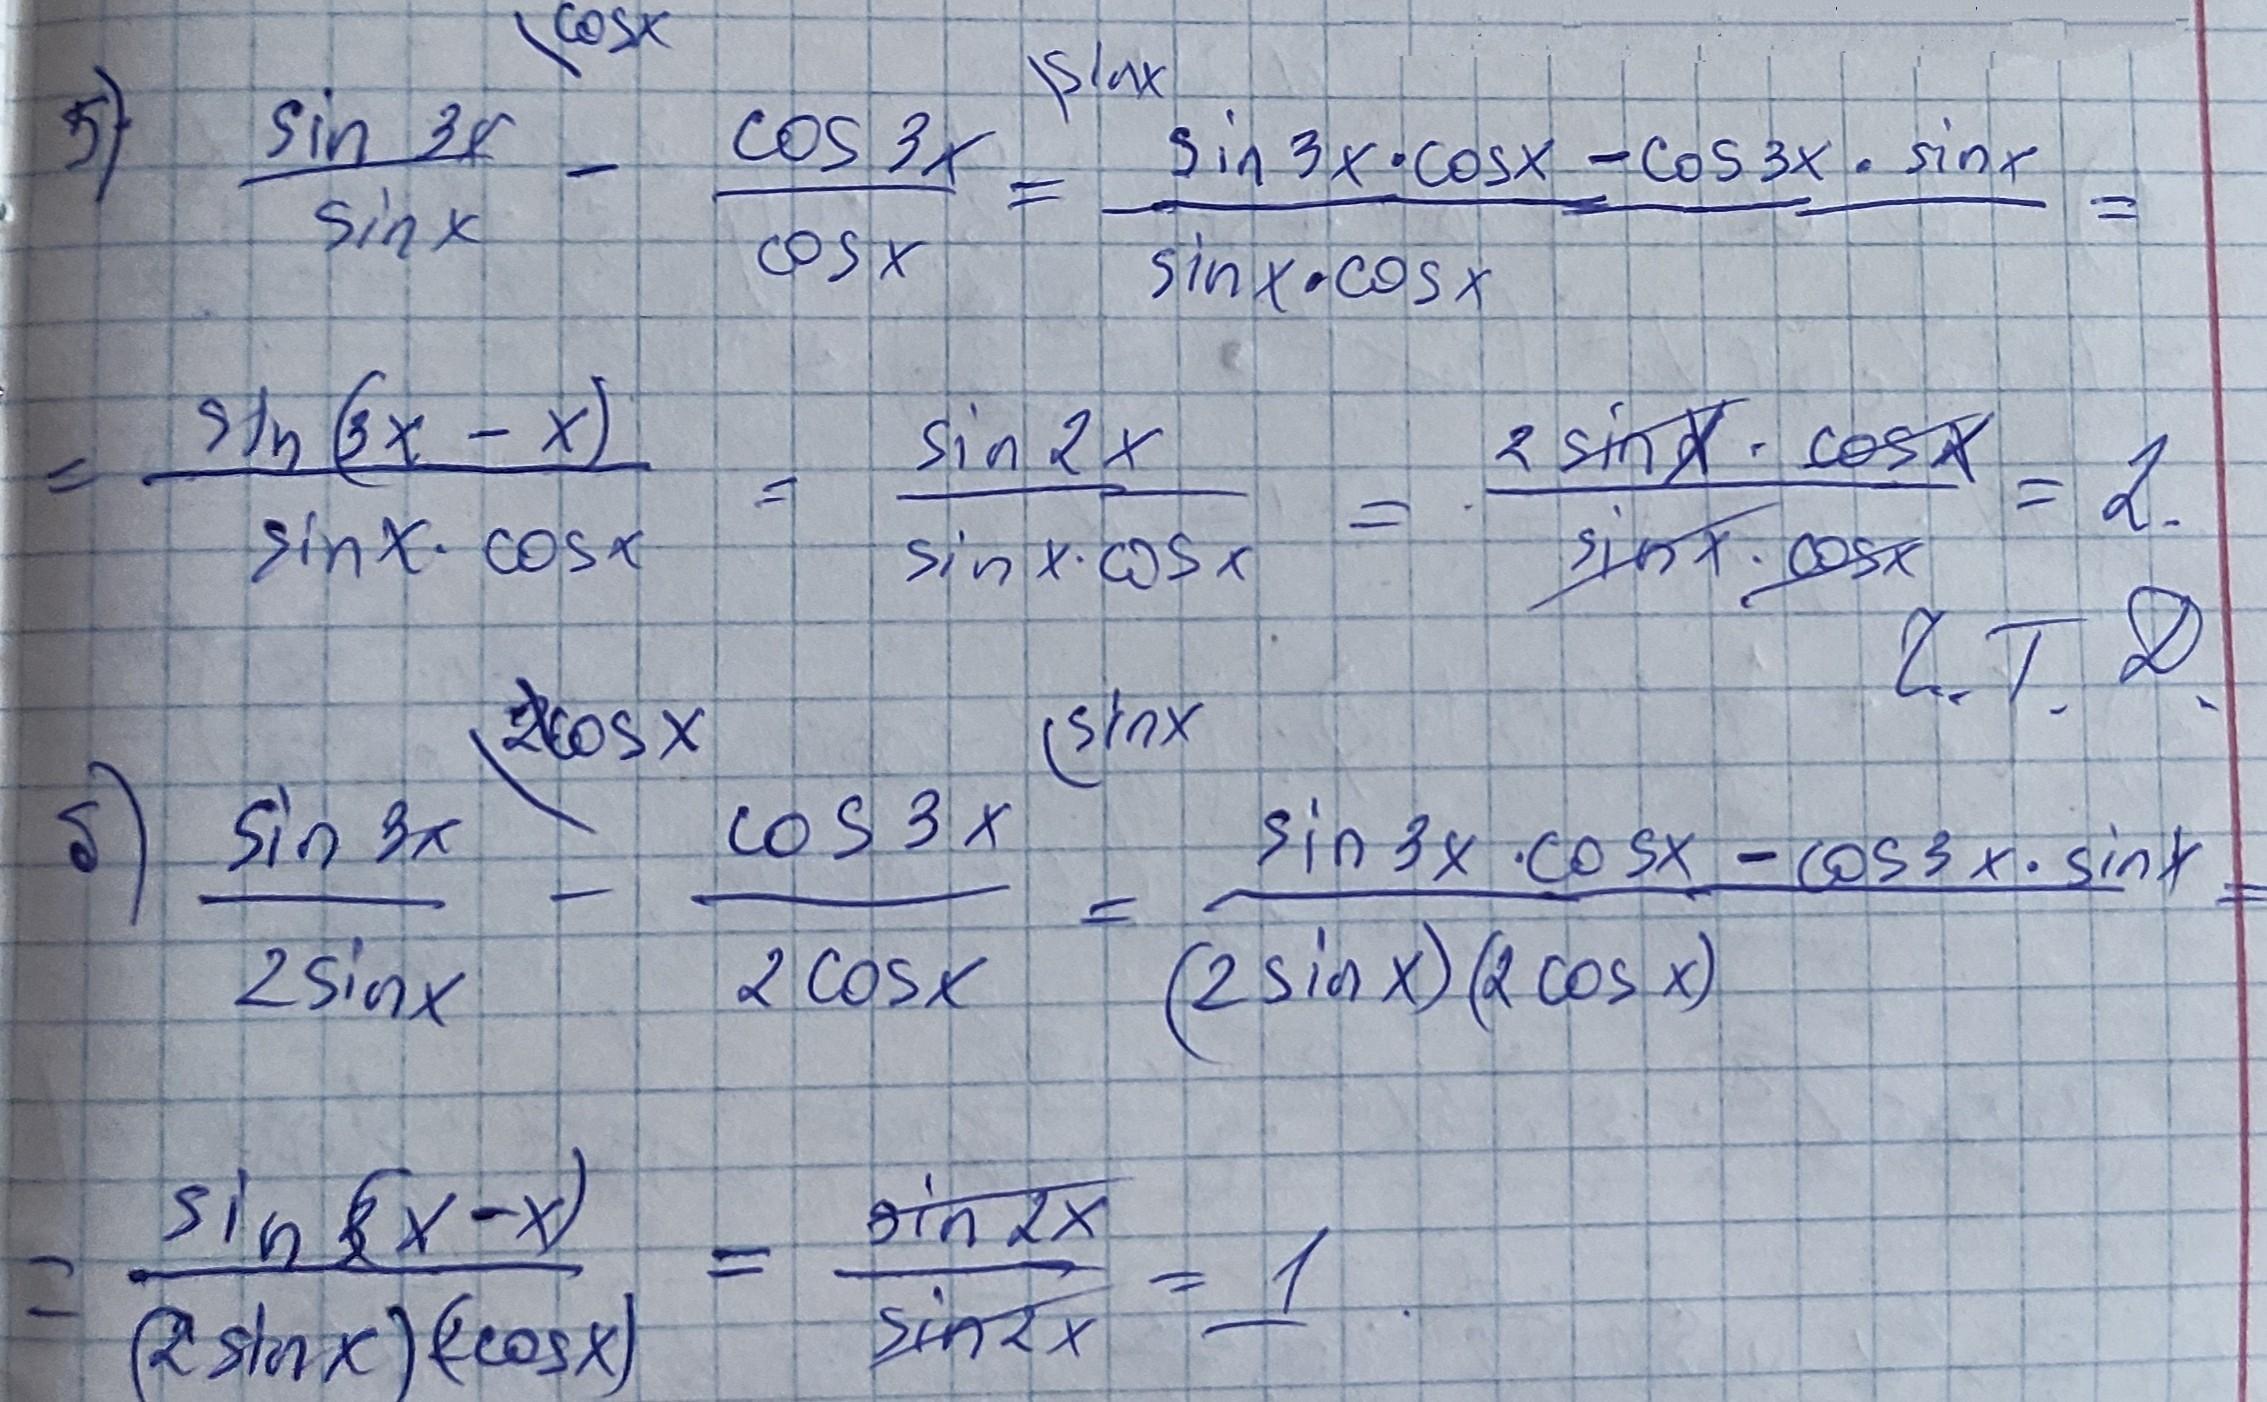 \cosx \sinx
5) sin 3x / sin x − cos 3x / cos x = sin 3x · cos x − cos 3x · sin x / sin x · cos x =
= sin (3x − x) / sin x · cos x = sin 2x / sin x · cos x = 2 sin x · cos x / sin x · cos x = 2.
Ч. Т. Д.
\2cos x \sin x
б) sin 3x / 2 sin x − cos 3x / 2 cos x = sin 3x · cos x − cos 3x · sin x / (2 sin x) (2 cos x) =
= sin (3x − x) / (2 sin x) (2 cos x) = sin 2x / sin 2x = 1.